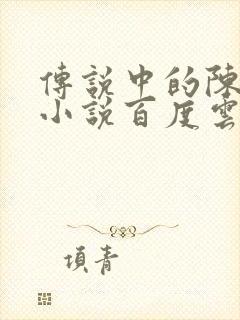 傳說中的陳
小說百度雲
項青